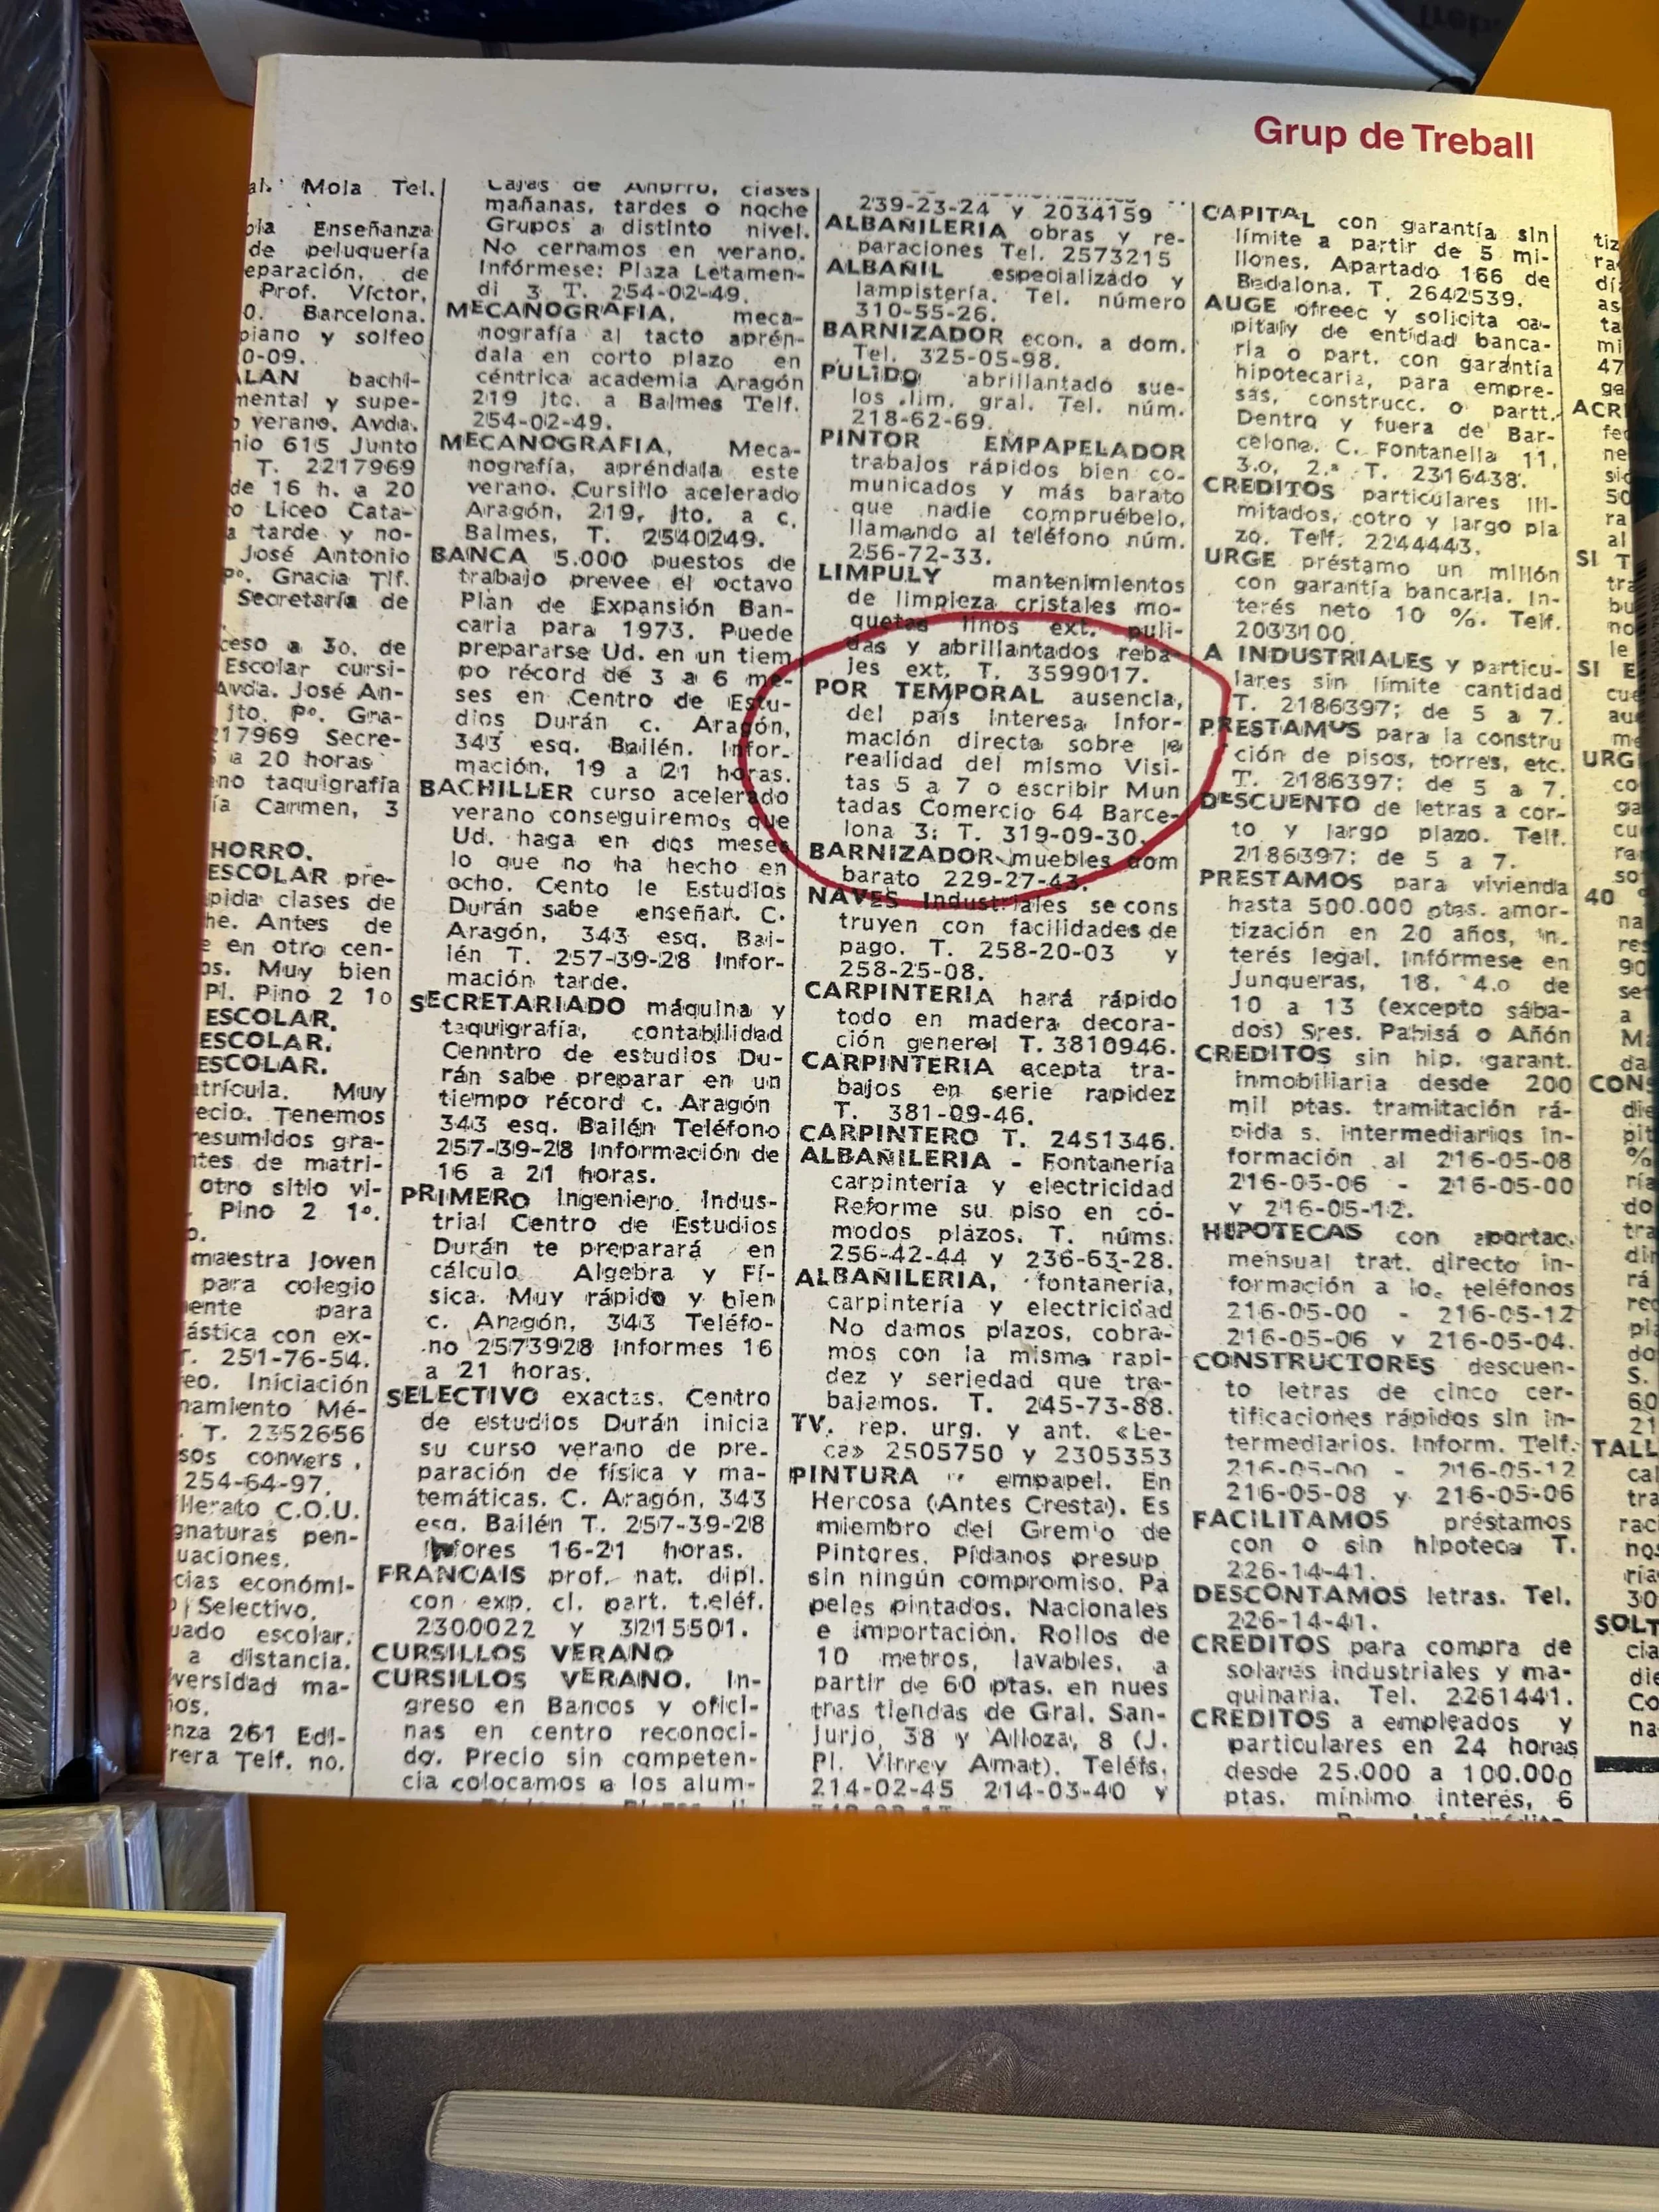 Grup de Treball
Mola Tel.
Enseñanza
de peluquería
eparación, de
Prof. Víctor,
0. Barcelona.
piano y solfeo
0-09.
ALAN bachi-
mental y supe-
verano. Avda.
nio 615 Junto
T. 2217969
de 16 h. a 20
o Liceo Cata-
a tarde y no-
José Antonio
Pº. Gracia Tlf.
Secretaría de
ceso a 30. de
Escolar cursi-
Avda. José An-
jto. Pº. Gra-
217969 Secre-
a 20 horas
ano taquigrafía
ía Carmen, 3
HORRO.
ESCOLAR pre-
pida clases de
he. Antes de
e en otro cen-
os. Muy bien
Pl. Pino 2 1o
ESCOLAR.
ESCOLAR.
ESCOLAR.
atrícula. Muy
ecio. Tenemos
resumidos gra-
ntes de matri-
otro sitio vi-
Pino 2 1º.
o.
maestra Joven
para colegio
ente para
ástica con ex-
T. 251-76-54.
eo. Iniciación
namiento Mé-
. T. 2352656
sos convers,
254-64-97.
illerato C.O.U.
gnaturas pen-
uaciones.
cias económi-
Selectivo.
uado escolar.
a distancia.
versidad ma-
ños.
nza 261 Edi-
rera Telf. no.
Cajas de Ahorro, clases
mañanas, tardes o noche
Grupos a distinto nivel.
No cerramos en verano.
Infórmese: Plaza Letamen-
di 3 T. 254-02-49.
MECANOGRAFIA, meca-
nografía al tacto aprén-
dala en corto plazo en
céntrica academia Aragón
219 jto. a Balmes Telf.
254-02-49.
MECANOGRAFIA, Meca-
nografía, apréndala este
verano. Cursillo acelerado
Aragón, 219, jto. a c.
Balmes, T. 2540249.
BANCA 5.000 puestos de
trabajo prevee el octavo
Plan de Expansión Ban-
caria para 1973. Puede
prepararse Ud. en un tiem
po récord de 3 a 6 me-
ses en Centro de Estu-
dios Durán c. Aragón,
343 esq. Bailén. Infor-
mación, 19 a 21 horas.
BACHILLER curso acelerado
verano conseguiremos que
Ud. haga en dos meses
lo que no ha hecho en
ocho. Cento le Estudios
Durán sabe enseñar. C.
Aragón, 343 esq. Bai-
lén T. 257-39-28 Infor-
mación tarde.
SECRETARIADO máquina y
taquigrafía, contabilidad
Cenntro de estudios Du-
rán sabe preparar en un
tiempo récord c. Aragón
343 esq. Bailén Teléfono
257-39-28 Información de
16 a 21 horas.
PRIMERO Ingeniero Indus-
trial Centro de Estudios
Durán te preparará en
cálculo Algebra y Fí-
sica. Muy rápido y bien
c. Aragón, 343 Teléfo-
no 2573928 Informes 16
a 21 horas.
SELECTIVO exactas. Centro
de estudios Durán inicia
su curso verano de pre-
paración de física y ma-
temáticas. C. Aragón, 343
esq. Bailén T. 257-39-28
16-21 horas.
FRANCAIS prof. nat. dipl.
con exp. cl. part. teléf.
2300022 y 3215501.
CURSILLOS VERANO
CURSILLOS VERANO. In-
greso en Bancos y ofici-
nas en centro reconoci-
do. Precio sin competen-
cia colocamos a los alum-
239-23-24 y 2034159
ALBAÑILERIA obras y re-
paraciones Tel. 2573215
ALBAÑIL especializado y
lampistería. Tel. número
310-55-26.
BARNIZADOR econ. a dom.
Tel. 325-05-98.
PULIDO abrillantado sue-
los lim. gral. Tel. núm.
218-62-69.
PINTOR EMPAPELADOR
trabajos rápidos bien co-
municados y más barato
que nadie compruébelo,
llamando al teléfono núm.
256-72-33.
LIMPULY mantenimientos
de limpieza cristales mo-
quetas linos ext. puli-
das y abrillantados reba-
jes ext. T. 3599017.
POR TEMPORAL ausencia,
del país interesa infor-
mación directa sobre la
realidad del mismo Visi-
tas 5 a 7 o escribir Mun
tadas Comercio 64 Barce-
lona 3: T. 319-09-30.
BARNIZADOR muebles dom
barato 229-27-43.
NAVES Industriales se cons
truyen con facilidades de
pago. T. 258-20-03 y
258-25-08.
CARPINTERIA hará rápido
todo en madera decora-
ción general T. 3810946.
CARPINTERIA acepta tra-
bajos en serie rapidez
T. 381-09-46.
CARPINTERO T. 2451346.
ALBAÑILERIA - Fontanería
carpintería y electricidad
Reforme su piso en có-
modos plazos. T. núms.
256-42-44 y 236-63-28.
ALBAÑILERIA, fontanería,
carpintería y electricidad
No damos plazos, cobra-
mos con la misma rapi-
dez y seriedad que tra-
bajamos. T. 245-73-88.
TV. rep. urg. y ant. «Le-
ca» 2505750 y 2305353
PINTURA empapel. En
Hercosa (Antes Cresta). Es
miembro del Gremio de
Pintores. Pídanos presup
sin ningún compromiso. Pa
peles pintados. Nacionales
e importación. Rollos de
10 metros, lavables, a
partir de 60 ptas. en nues
tras tiendas de Gral. San-
jurjo, 38 y Alloza, 8 (J.
Pl. Virrey Amat). Teléfs.
214-02-45 214-03-40 y
CAPITAL con garantía sin
límite a partir de 5 mi-
llones. Apartado 166 de
Badalona. T. 2642539.
AUGE ofreec y solicita ca-
pitaly de entidad banca-
ria o part. con garantía
hipotecaria, para empre-
sas, construcc. o partt.
Dentro y fuera de Bar-
celona. C. Fontanella 11,
3.o, 2.ª T. 2316438.
CREDITOS particulares ili-
mitados, cotro y largo pla
zo. Telf. 2244443.
URGE préstamo un millón
con garantía bancaria. In-
terés neto 10 %. Telf.
2033100.
A INDUSTRIALES y particu-
lares sin límite cantidad
T. 2186397; de 5 a 7.
PRESTAMOS para la constru
ción de pisos, torres, etc.
T. 2186397; de 5 a 7.
DESCUENTO de letras a cor-
to y largo plazo. Telf.
2186397; de 5 a 7.
PRESTAMOS para vivienda
hasta 500.000 ptas. amor-
tización en 20 años, in-
terés legal. Infórmese en
Junqueras, 18, 4.o de
10 a 13 (excepto sába-
dos) Sres. Pabisá o Añón
CREDITOS sin hip. garant.
inmobiliaria desde 200
mil ptas. tramitación rá-
pida s. intermediarios in-
formación al 216-05-08
216-05-06 - 216-05-00
y 216-05-12.
HIPOTECAS con aportac.
mensual trat. directo in-
formación a lo. teléfonos
216-05-00 - 216-05-12
216-05-06 y 216-05-04.
CONSTRUCTORES descuen-
to letras de cinco cer-
tificaciones rápidos sin in-
termediarios. Inform. Telf.
216-05-00 - 216-05-12
216-05-08 y 216-05-06
FACILITAMOS préstamos
con o sin hipoteca T.
226-14-41.
DESCONTAMOS letras. Tel.
226-14-41.
CREDITOS para compra de
solares industriales y ma-
quinaria. Tel. 2261441.
CREDITOS a empleados y
particulares en 24 horas
desde 25.000 a 100.000
ptas. mínimo interés, 6